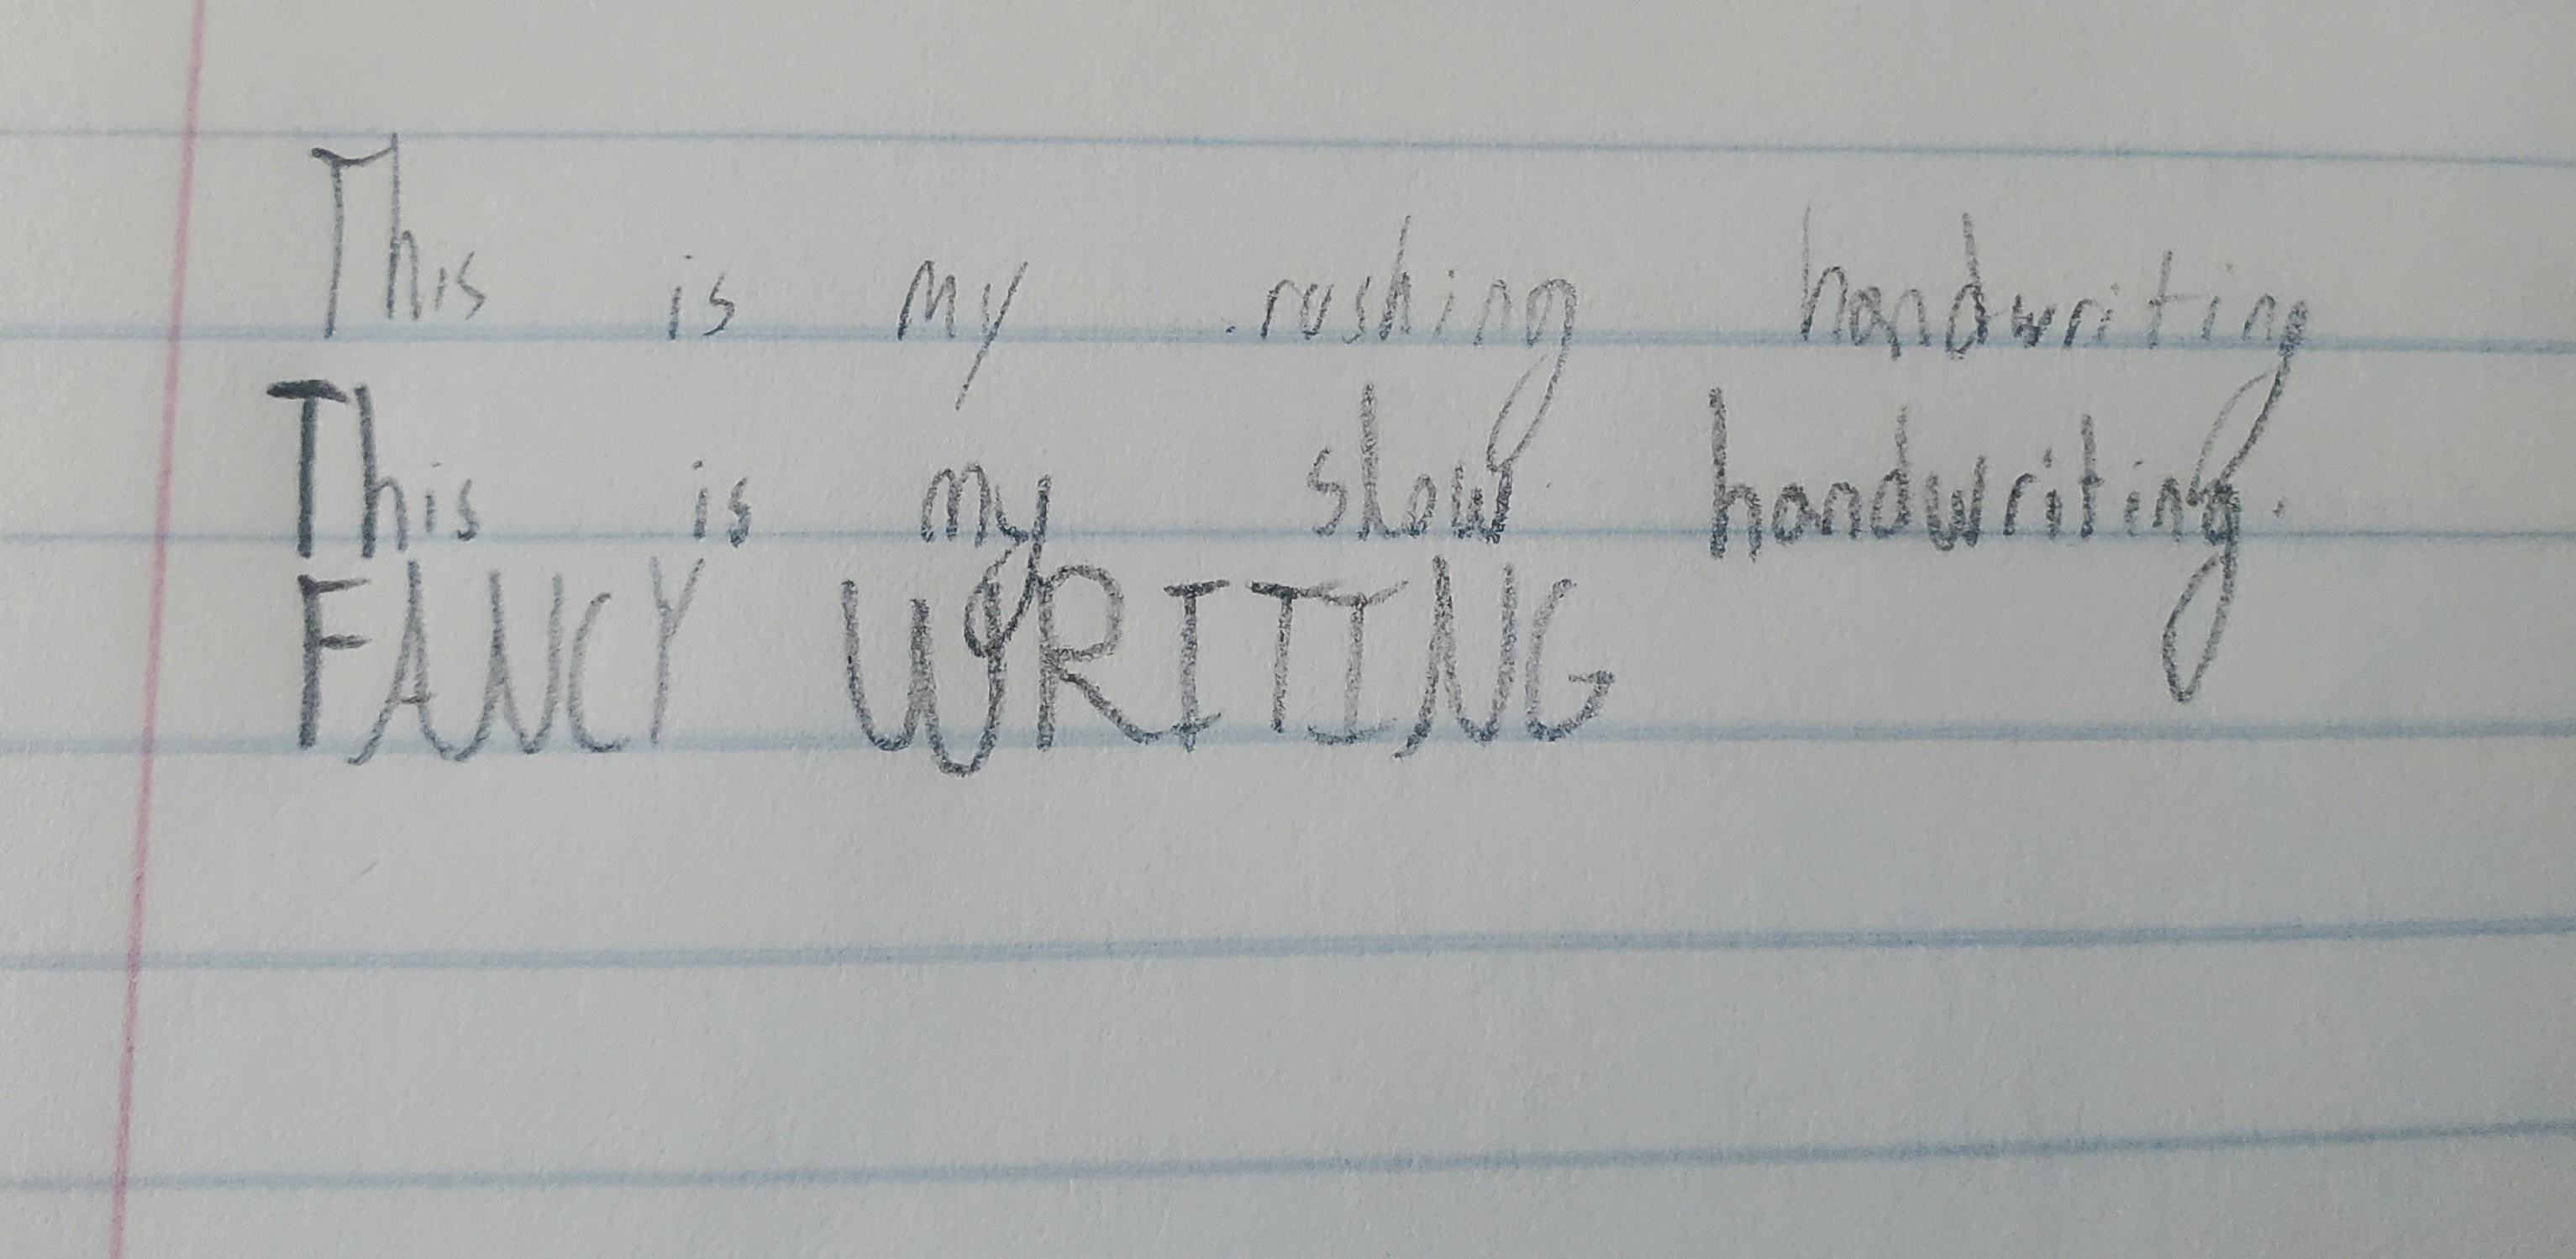 This is my rushing handwriting
This is my slow handwriting.
FANCY WRITING